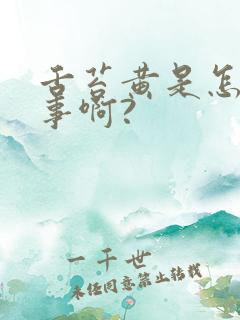 舌苔黄是怎
事啊?
一千世
未经同意禁止转载